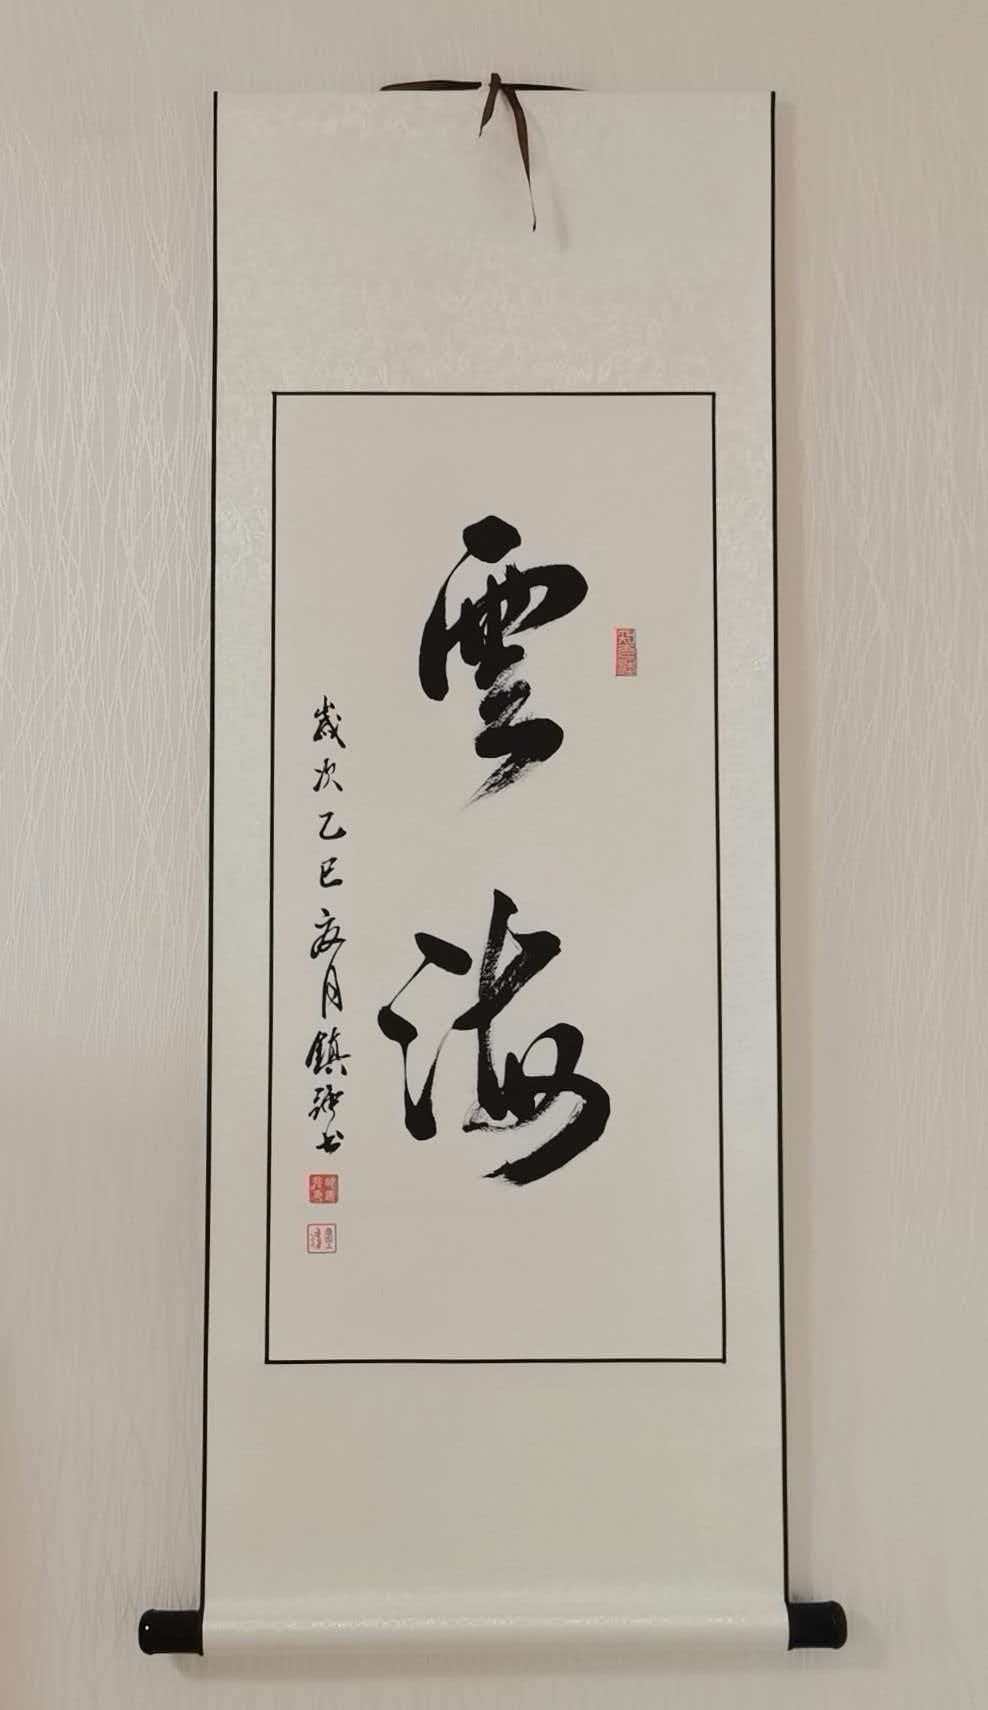 雲海
歲次乙巳亥月鎮強书